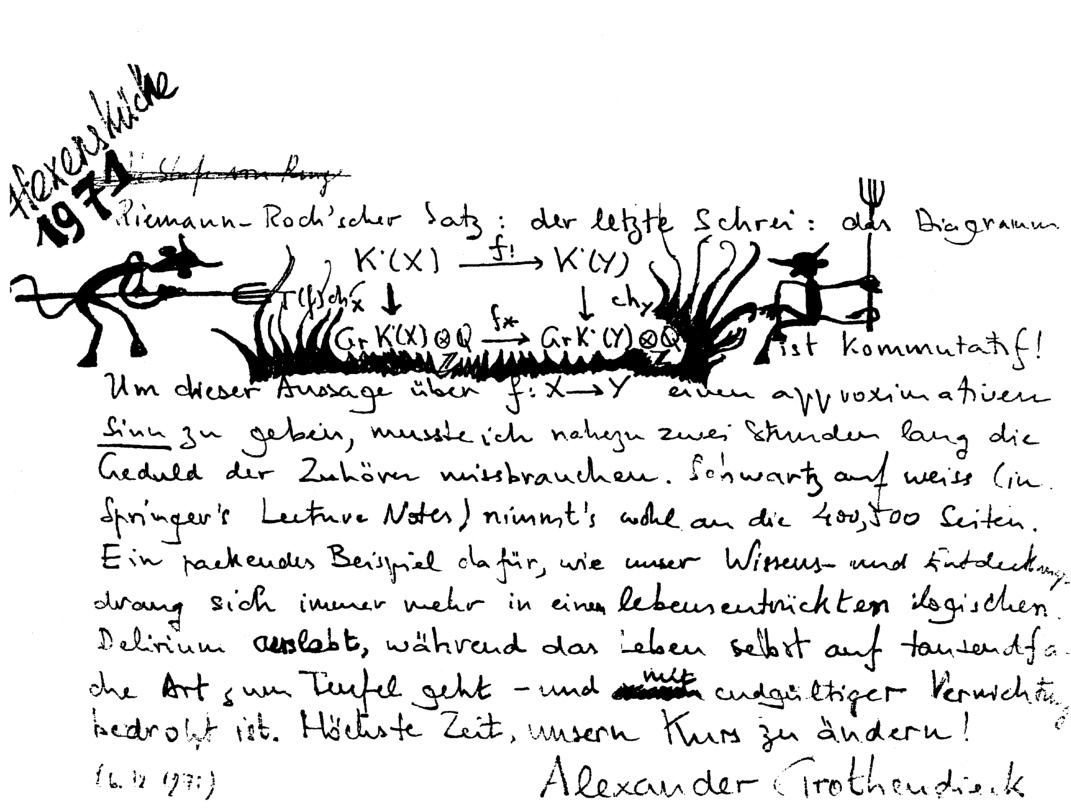 Hexensküche
1971
Riemann-Roch'scher Satz: der letzte Schrei: das Diagramm
K˙(X) f! → K˙(Y)
T(f)chX ↓ ↓ chY
Gr K˙(X) ⊗ℤ Q f* → Gr K˙(Y) ⊗ℤ Q
ist kommutatif!
Um dieser Aussage über f: X → Y einen approximativen
Sinn zu geben, musste ich nahezu zwei Stunden lang die
Geduld der Zuhörer missbrauchen. Schwartz auf weiss (in
Springer's Lecture Notes) nimmt's wohl an die 400, 500 Seiten.
Ein packendes Beispiel dafür, wie unser Wissens- und Entdeckungs
drang sich immer mehr in einem lebensentrückten logischen
Delirium auslebt, während das Leben selbst auf tausendfa-
che Art zum Teufel geht - und mit endgültiger Vernichtung
bedroht ist. Höchste Zeit, unsern Kurs zu ändern!
Alexander Grothendieck